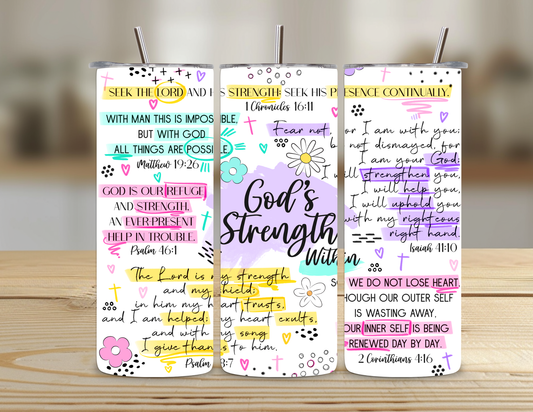 SEEK THE LORD AND H S STRENGTH; SEEK HIS P ESENCE CONTINUALLY.
1 Chronicles 16:11
WITH MAN THIS IS IMPOS BLE,
BUT WITH GOD
ALL THINGS ARE POSSIBLE
Matthew 19:26
GOD IS OUR REFUGE
AND STRENGTH,
AN EVER-PRESENT
HELP IN TROUBLE.
Psalm 46:1
The Lord is my strength
and my shield;
in him my heart trusts,
and I am helped; my heart exults,
and with my song
I give thanks to him.
Psalm 8:7
God's
Strength
Within
Fear not, for I am with you;
be not dismayed, for
I am your God;
I will strengthen you,
I will help you,
I will uphold you
with my righteous
right hand.
Isaiah 41:10
SO WE DO NOT LOSE HEART.
THOUGH OUR OUTER SELF
IS WASTING AWAY,
OUR INNER SELF IS BEING
RENEWED DAY BY DAY.
2 Corinthians 4:16